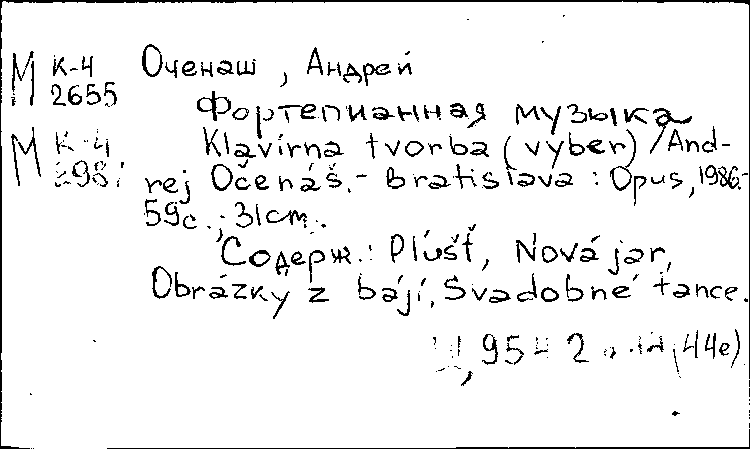 М К-4 Оченаш, Андрей
2655
Фортепианная музыка
М К-4 Klavírna tvorba (vyber) / And-
rej Očenáš. - Bratislava : Opus, 1986.-
59с.; 31cm.
Содерж.: Plúšť, Nová jar,
Obrázky z bájí, Svadobné tance.
(44е)